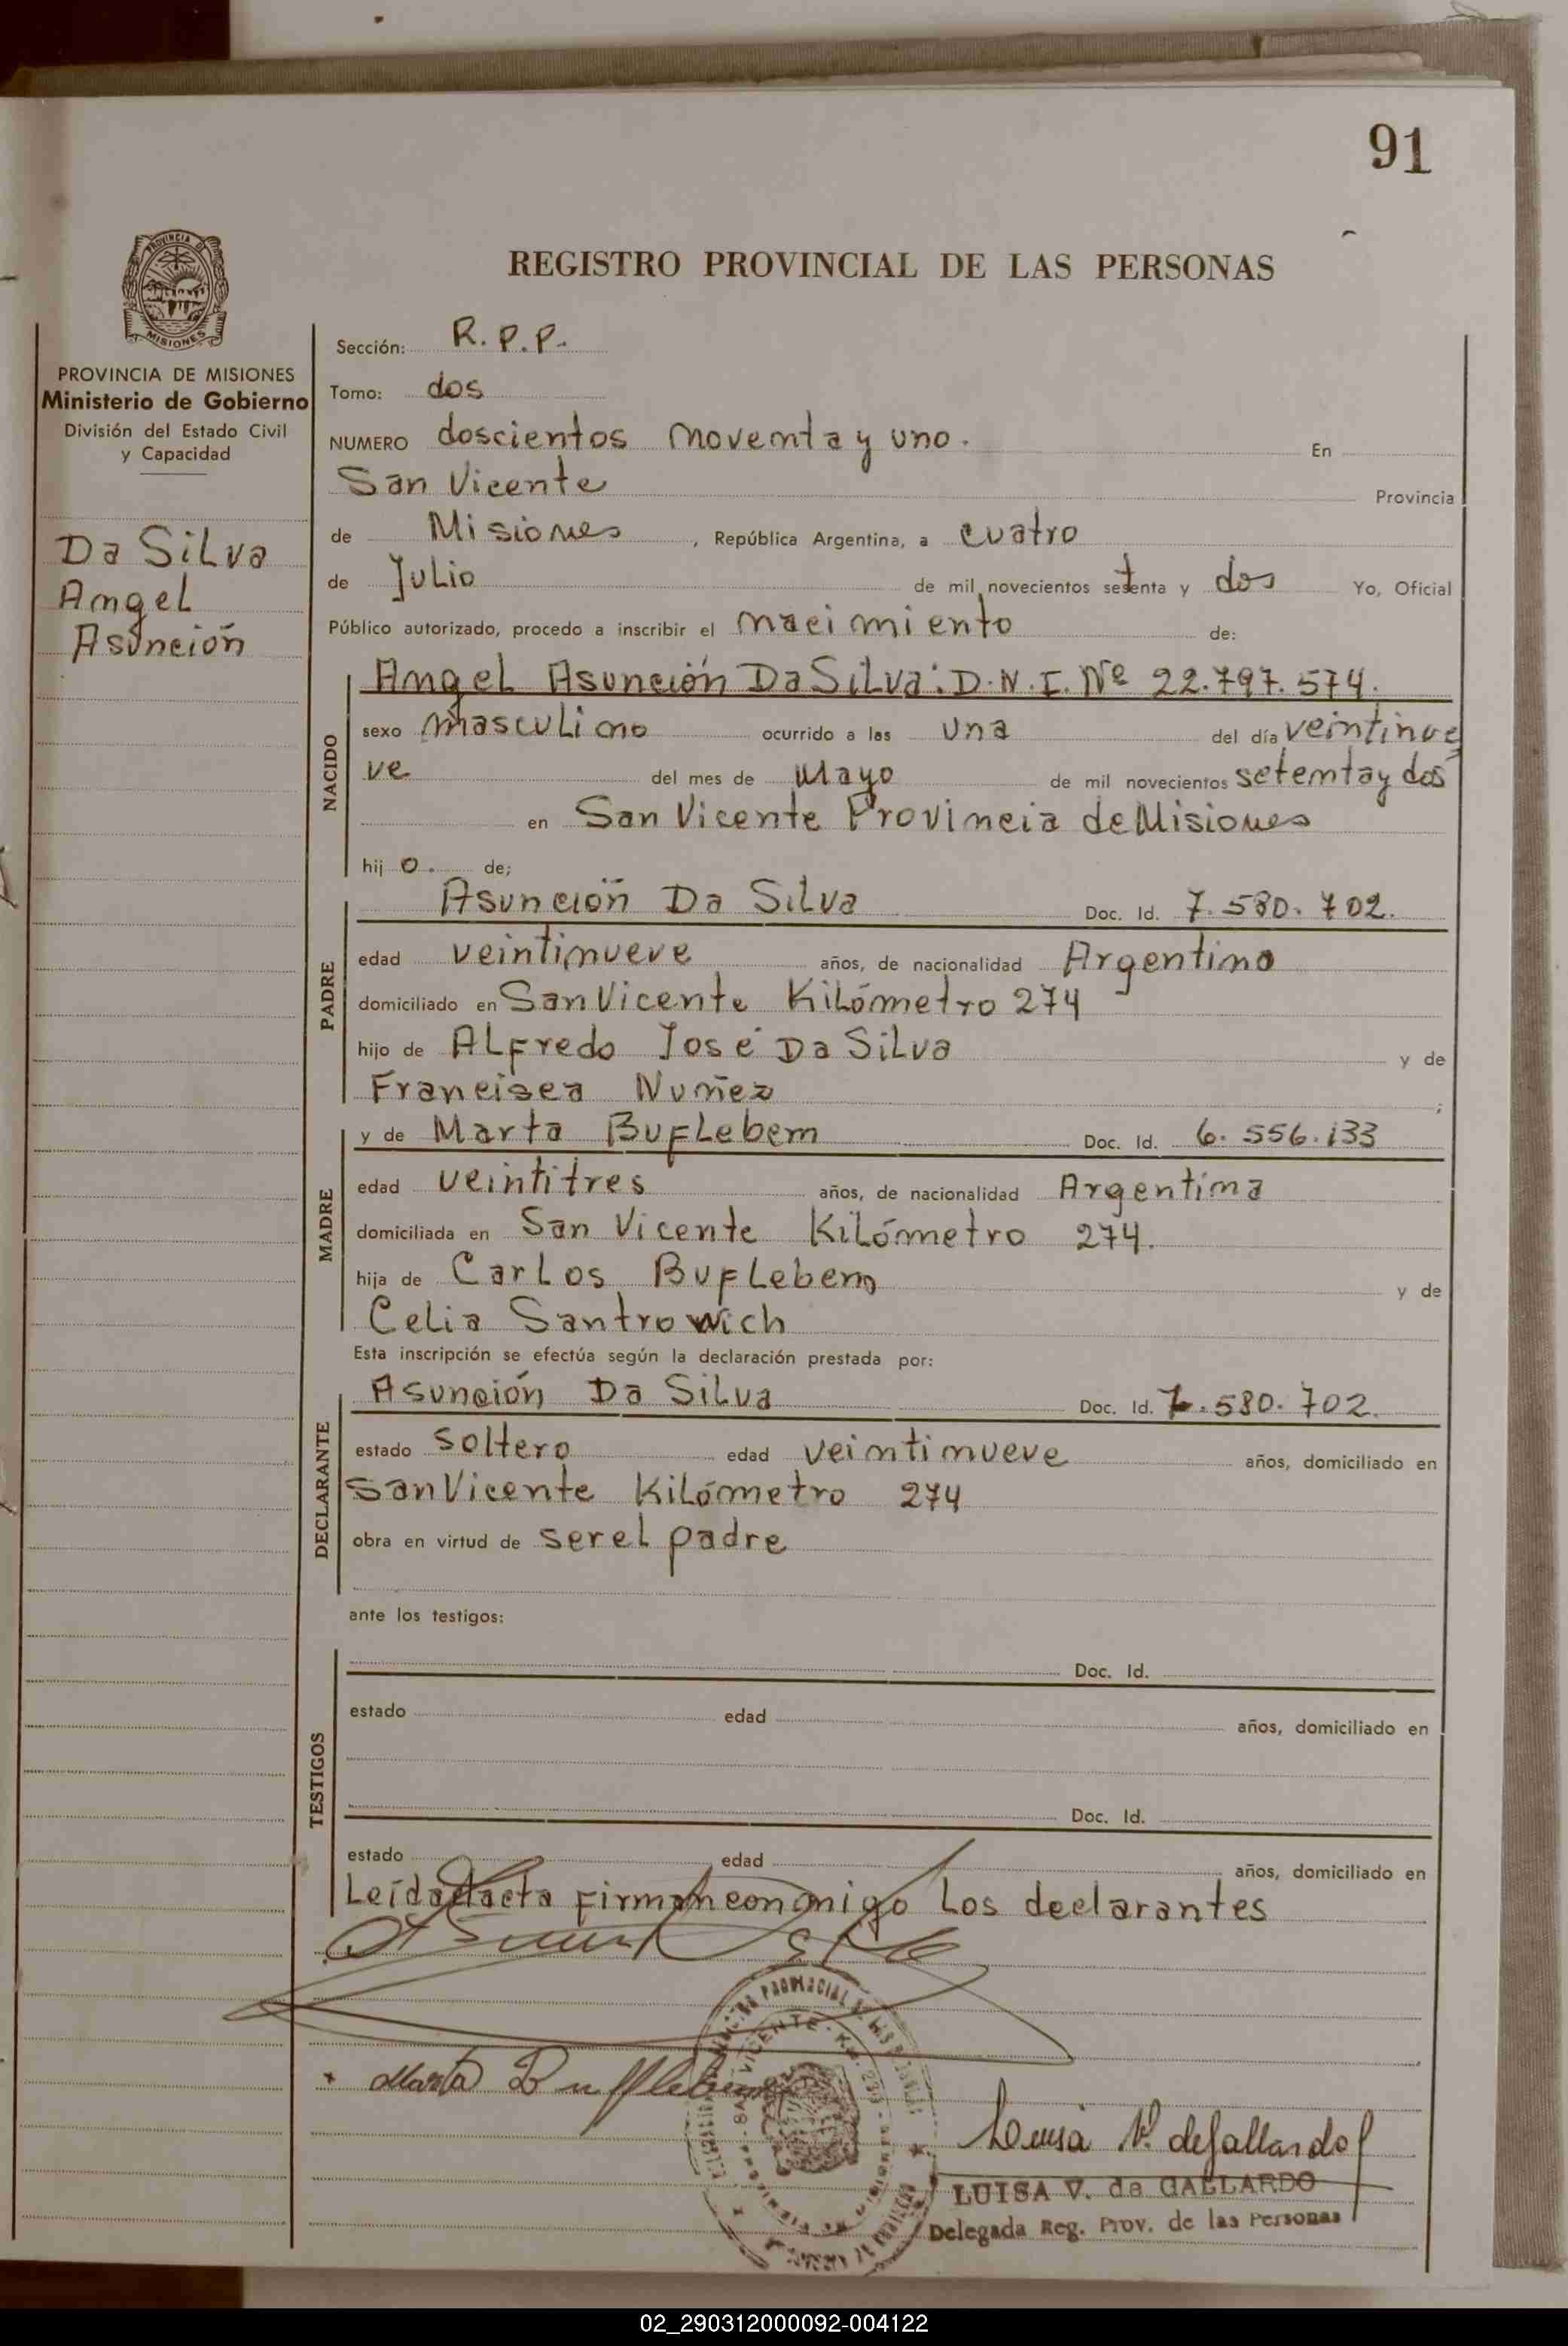 91
REGISTRO PROVINCIAL DE LAS PERSONAS
PROVINCIA DE MISIONES
Ministerio de Gobierno
División del Estado Civil
y Capacidad
Da Silva
Angel
Asunción
Sección: R.P.P.
Tomo: dos
NUMERO doscientos noventa y uno. En
San Vicente Provincia
de Misiones, República Argentina, a cuatro
de Julio de mil novecientos setenta y dos Yo, Oficial
Público autorizado, procedo a inscribir el nacimiento de:
NACIDO
Angel Asunción Da Silva: D.N.I. Nº 22.797.574.
sexo masculino ocurrido a las una del día veintinue
ve del mes de Mayo de mil novecientos setenta y dos
en San Vicente Provincia de Misiones
hijo. de;
PADRE
Asunción Da Silva Doc. Id. 7.580.702.
edad veintinueve años, de nacionalidad Argentino
domiciliado en San Vicente Kilómetro 274
hijo de Alfredo José Da Silva y de
Francisca Nuñez ;
MADRE
y de Marta Buflebem Doc. Id. 6.556.133
edad veintitres años, de nacionalidad Argentina
domiciliada en San Vicente Kilómetro 274.
hija de Carlos Buflebem y de
Celia Santrowich
Esta inscripción se efectúa según la declaración prestada por:
DECLARANTE
Asunción Da Silva Doc. Id. 7.580.702.
estado soltero edad veintinueve años, domiciliado en
San Vicente Kilómetro 274
obra en virtud de ser el padre
ante los testigos:
TESTIGOS
Doc. Id.
estado edad años, domiciliado en
Doc. Id.
estado edad años, domiciliado en
Leída el acta firman conmigo los declarantes
Marta Bufflebem
Luisa V. de Gallardo
LUISA V. de GALLARDO
Delegada Reg. Prov. de las Personas
02_290312000092-004122